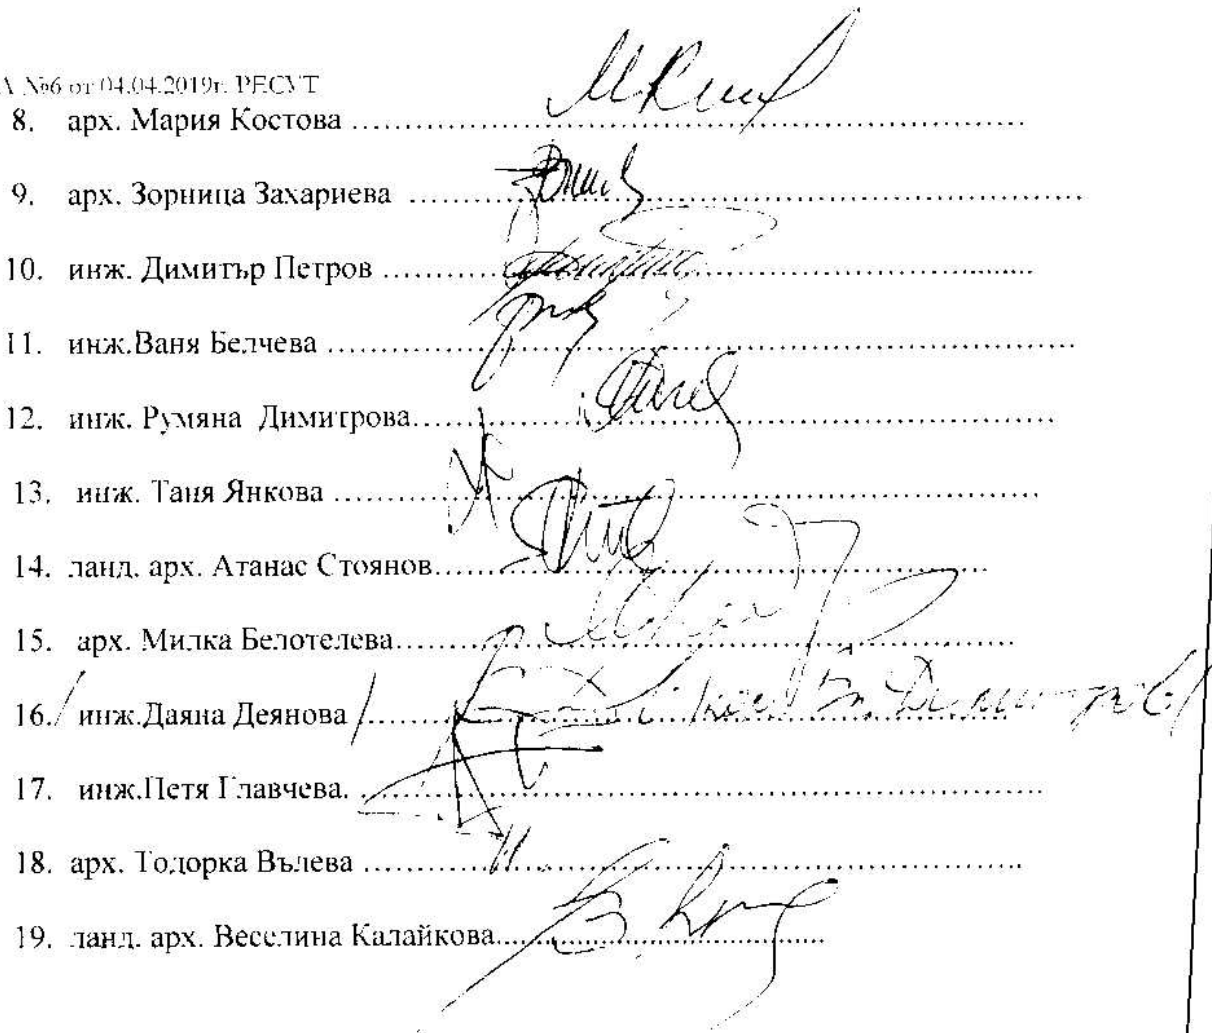 №6 от 04.04.2019г. РЕСУТ
8. арх. Мария Костова ..........
9. арх. Зорница Захариева ..........
10. инж. Димитър Петров ..........
11. инж.Ваня Белчева ..........
12. инж. Румяна Димитрова..........
13. инж. Таня Янкова ..........
14. ланд. арх. Атанас Стоянов..........
15. арх. Милка Белотелева..........
16./ инж.Даяна Деянова /..........
17. инж.Петя Главчева. ..........
18. арх. Тодорка Вълева ..........
19. ланд. арх. Веселина Калайкова..........